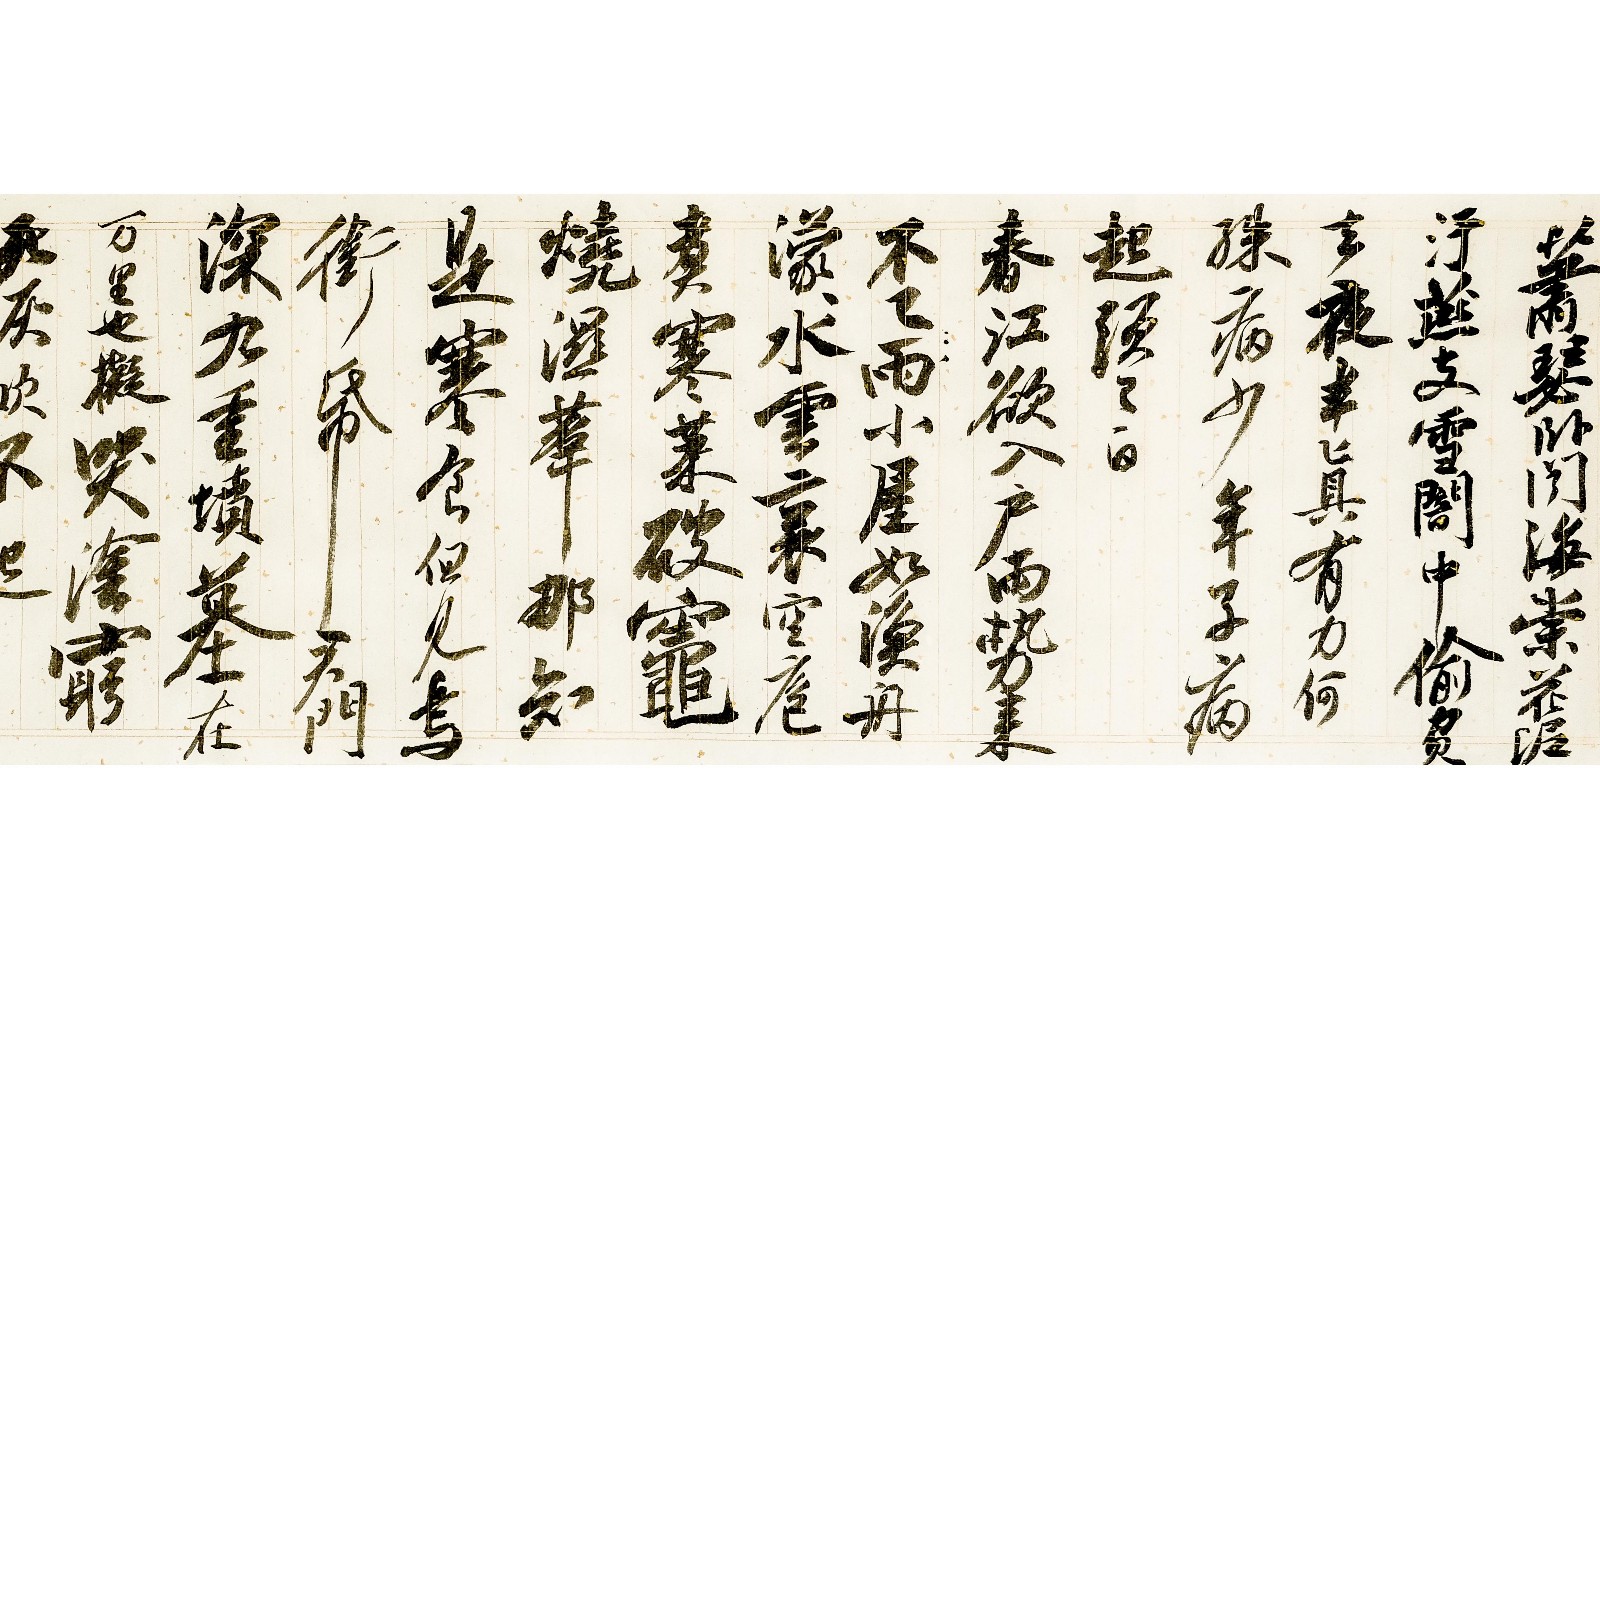 蕭瑟臥聞海棠花泥
汙燕支雪闇中偷負
去夜半真有力何
殊病少年子病
起須已白
春江欲入戶雨勢來
不已雨小屋如漁舟
濛々水雲裏空庖
煮寒菜破竈
燒濕葦那知
是寒食但見烏
銜帋君門
深九重墳墓在
万里也擬哭塗窮
死灰吹不起